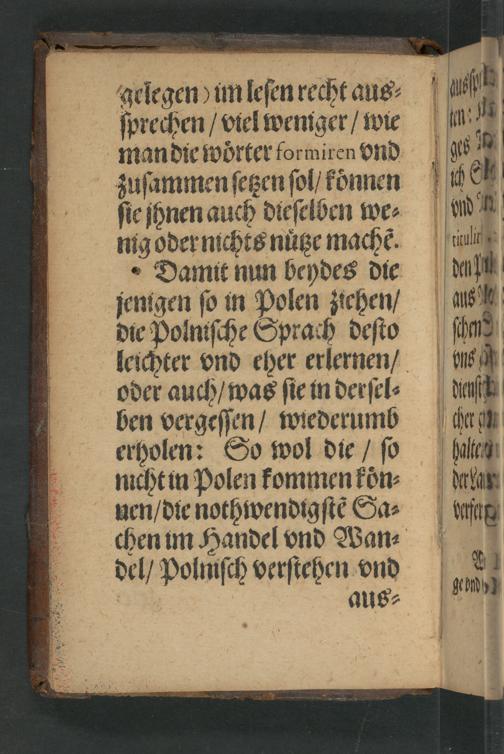 gelegen) im lesen recht aus⸗
sprechen / viel weniger / wie
man die wörter formiren vnd
zusammen setzen sol / können
sie jhnen auch dieselben we⸗
nig oder nichts nütze machẽ.
Damit nun beydes die
jenigen so in Polen ziehen /
die Polnische Sprach desto
leichter vnd eher erlernen /
oder auch / was sie in dersel⸗
ben vergessen / wiederumb
erholen: So wol die / so
nicht in Polen kommen kön⸗
nen / die nothwendigstẽ Sa⸗
chen im Handel vnd Wan⸗
del / Polnisch verstehen vnd
aus⸗
ten:
ges
ich
vnd
den
aus
schen
vns
dienst
cher
halte
der
ge vnd